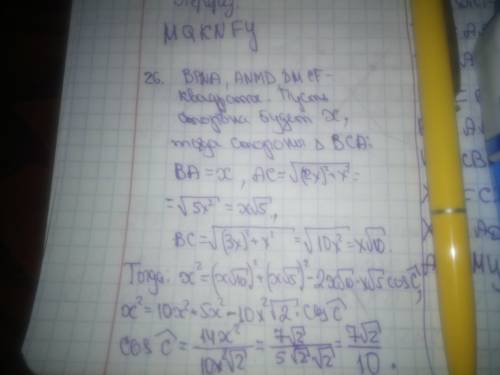 MQKNFY
26. BPNA, ANMD, DMCF-
квадраты. Пусть
сторона будет x,
тогда стороны Δ BCA:
BA = x, AC = √(2x)²+x² =
= √5x² = x√5,
BC = √(3x)²+x² = √10x² = x√10.
Тогда x² = (x√10)²+(x√5)² - 2x√10·x√5 cos C,
x² = 10x² + 5x² - 10x²√2 · cos C
cos C = 14x² / 10x²√2 = 7√2 / 5√2√2 = 7√2 / 10.